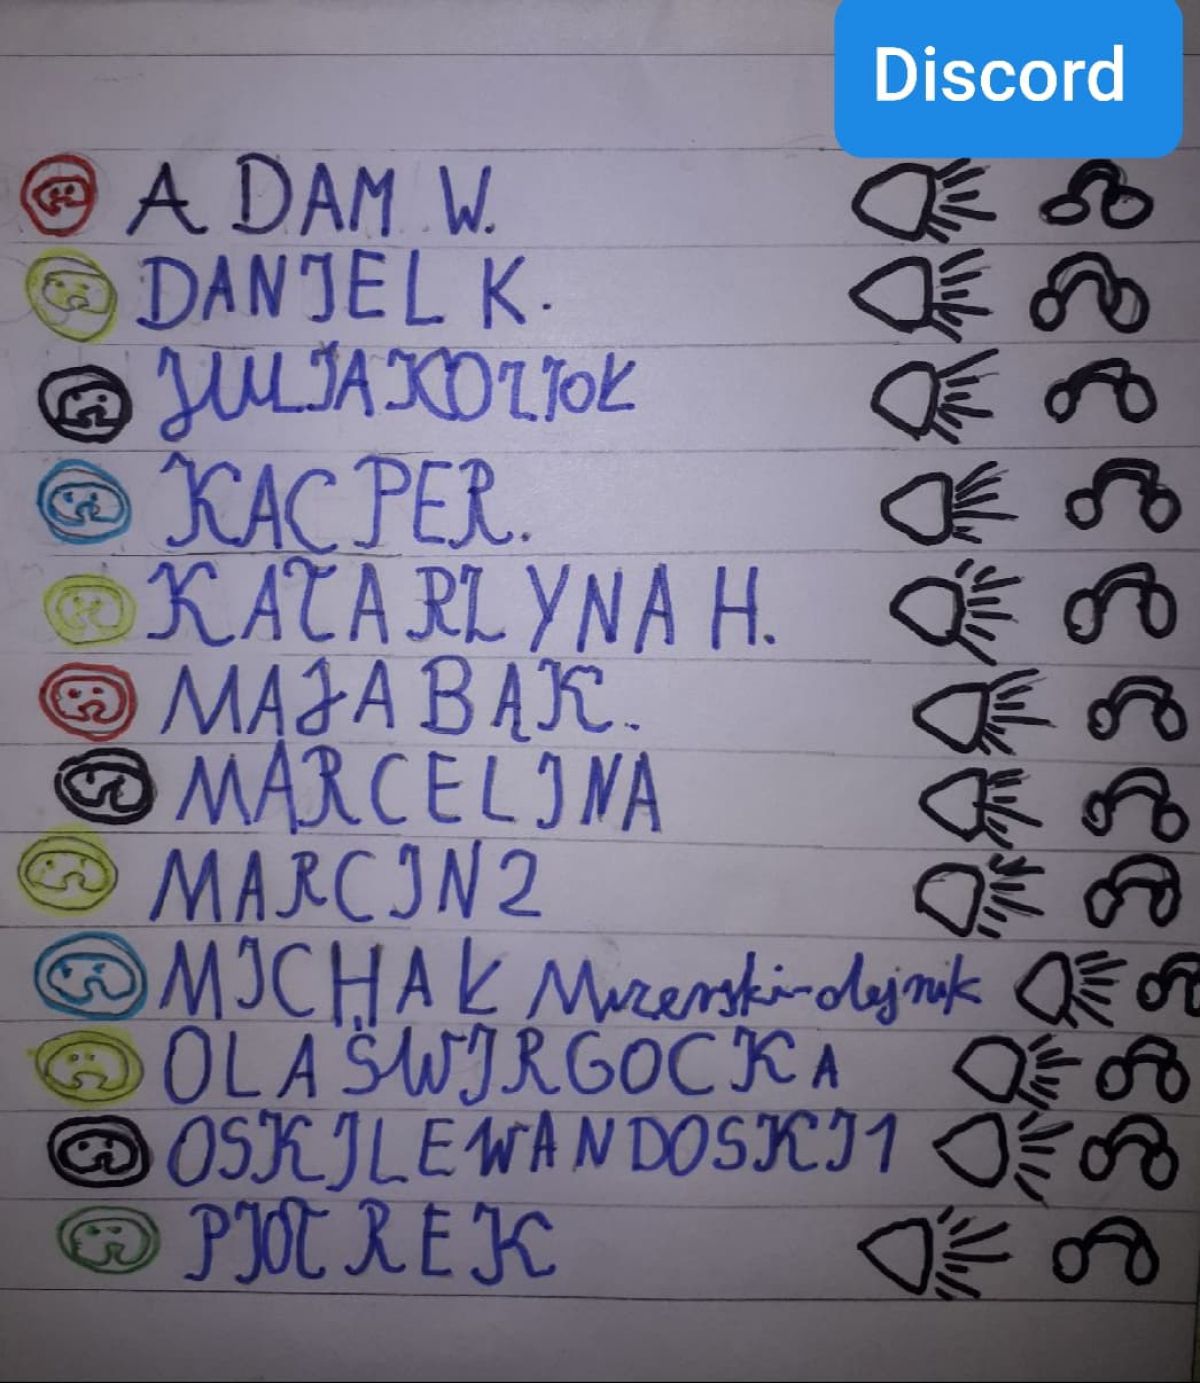 Discord
ADAM W.
DANIEL K.
JULIA KOZIOŁ
KACPER.
KATARZYNA H.
MAJA BĄK.
MARCELINA
MARCIN 2
MICHAŁ
OLA ŚWIRGOCKA
OSKILEWANDOSKI1
PIOTREK